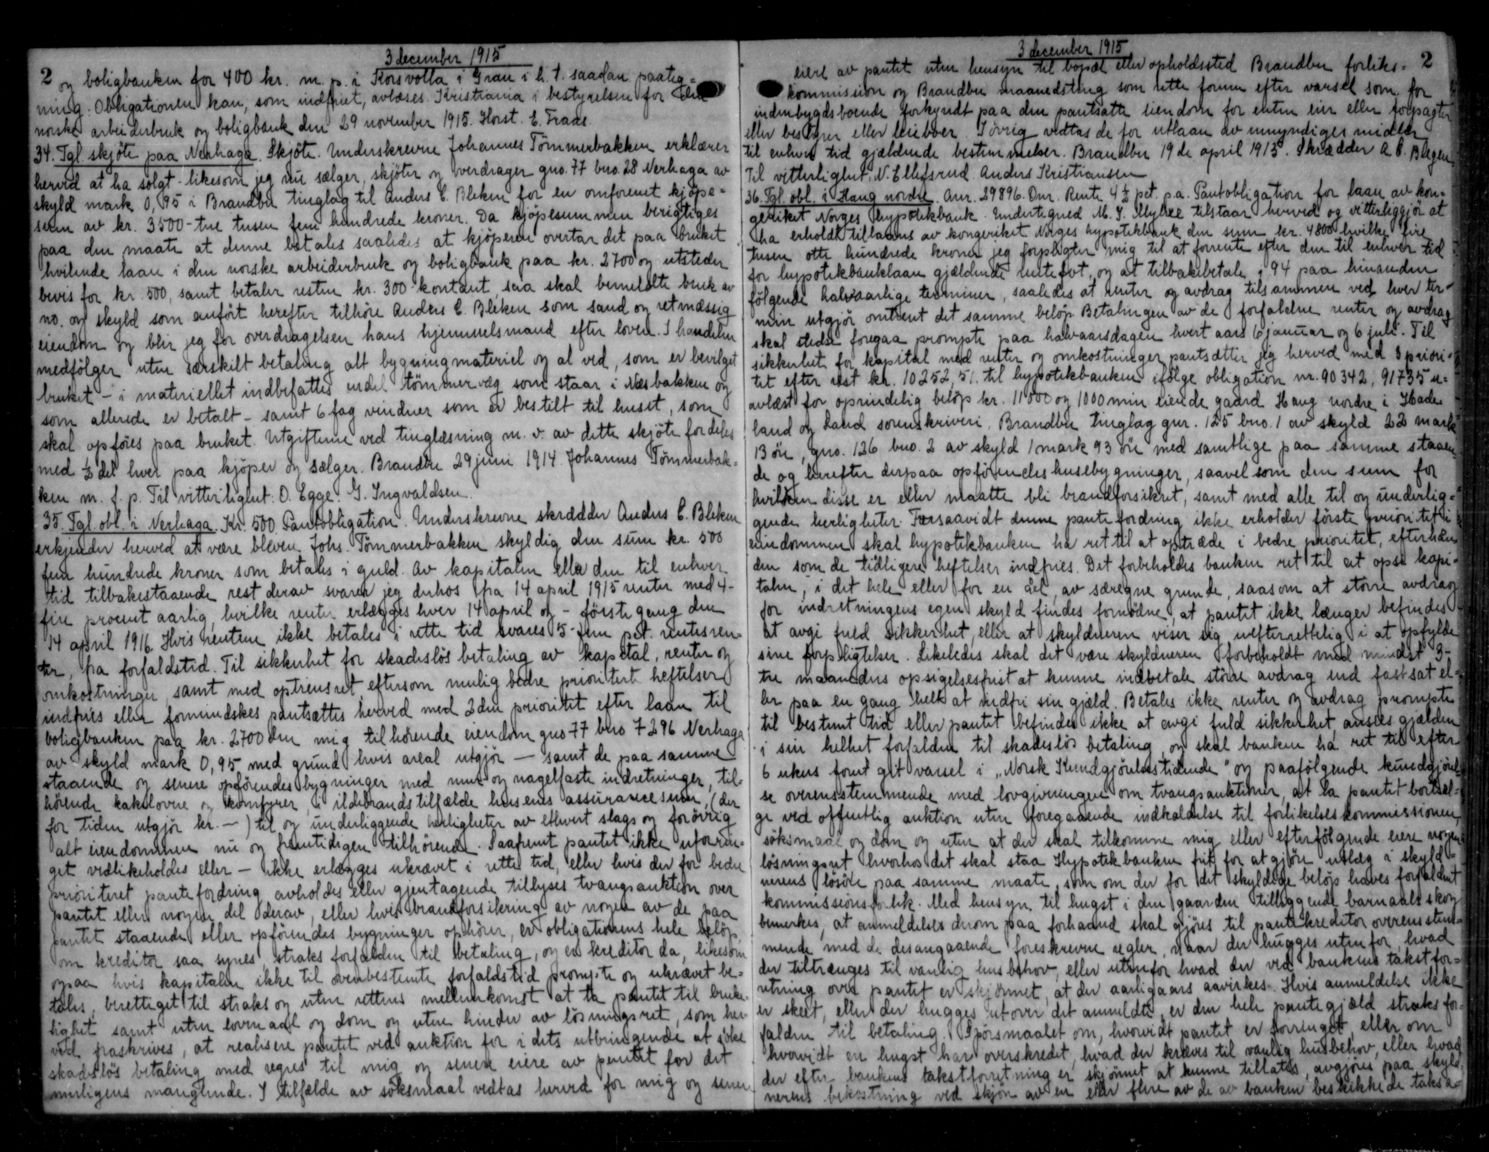 3 december 1915
2 og boligbanken for 400 kr. m. p. i Korsvolla i Gran i h. t. saadan paateg=
ning. Obligationen kan, som indfriet, avlæses. Kristiania i bestyrelsen for den
norske arbeiderbruk og boligbank den 29 november 1915. Horst. E. Traae.
34. Tgl skjöte paa Nerhaga. Skjöte. Underskrevne Johannes Tömmerbakken erklærer
herved at ha solgt - likesom jeg nu sælger, skjöter og overdrager gno. 77 bno. 28 Nerhaga av
skyld mark 0,95 i Brandbu tinglag til Anders E. Bleken for en omforenet kjöpe=
sum av kr. 3500 - tre tusen fem hundrede kroner. Da kjöpesummen berigtiges
paa den maate at denne betales saaledes at kjöperen overtar det paa bruket
hvilende laan i den norske arbeiderbruk og boligbank paa kr. 2700 og utsteder
bevis for kr. 500, samt betaler resten kr. 300 kontant saa skal bemeldte bruk av
no. og skyld som anfört herefter tilhöre Anders E. Bleken som sand og retmæssig
eiendom og blir jeg for overdragelsen hans hjemmelsmand efter loven. I handelen
medfölger uten særskilt betaling alt bygningmateriel og al ved, som er bevilget
bruket - i materiellet indbefattes endel tömmervæg som staar i Næsbakken og
som allerede er betalt - samt 6 fag vinduer som er bestilt til huset, som
skal opföres paa bruket. Utgifterne ved tinglæsning m. v. av dette skjöte fordeles
med ½ del hver paa kjöper og sælger. Brandbu 29 juni 1914. Johannes Tömmerbak=
ken m. f. p. Til vitterlighet: O. Egge. G. Ingvaldsen.
35. Tgl. obl. i Nerhaga. Kr. 500. Pantobligation. Underskrevne skrædder Anders E. Bleken
erkjender herved at være bleven Johs. Tömmerbakken skyldig den sum kr. 500
fem hundrede kroner som betales i guld. Av kapitalen eller den til enhver
tid tilbakestaaende rest derav svarer jeg dnhos fra 14 april 1915 renter med 4-
fire procent aarlig, hvilke renter erlægges hver 14 april og - förste gang den
14 april 1916. Hvis renterne ikke betales i rette tid svares 5-fem pct. rentesren=
ter, fra forfaldstid. Til sikkerhet for skadeslös betaling av kapital, renter og
omkostninger, samt med optrensret, eftersom mulig bedre prioritert heftelser
indfries eller formindskes pantsættes herved med 2den prioritet efter laan til
boligbanken paa kr. 2700 den mig tilhörende eiendom gno 77 bno 7296 Nerhaga
av skyld mark 0,95 med grund hvis areal utgjör — samt de paa samme
staaende og senere opförendes bygninger med mur og nagelfaste indretninger, til=
hörende kakelovne og komfyrer, i ildebrandstilfælde husenes assurancesum, (der
for tiden utgjör kr. —) til og underliggende herligheter av ethvert slags og forövrig
alt eiendommen nu og fremtidigen tilhörende. Saafremt pantet ikke uforrin=
get vedlikeholdes eller - ikke erlægges ukrævet i rette tid, eller hvis der for bedre
prioriteret pantefordring avholdes eller gjentagende tillyses tvangsauktion over
pantet eller nogen del derav, eller hvis brandforsikring av nogen av de paa
pantet staaende eller opförendes bygninger ophörer, er obligationens hele belöp,
om kreditor saa synes, straks forfalden til betaling, og er kreditor da, likesom
ogsaa hvis kapitalen ikke til ovenbestemte forfaldstid prompte og ukrævet be=
tales, berettiget til straks og uten rettens mellemkomst at ta pantet til bruke=
lighet samt uten lovmaal og dom og uten hinder av lösningsret, som her=
ved fraskrives, at realisere pantet ved auktion for i dets utbringende at söke
skadeslös betaling med regres til mig og senere eiere av pantet for det
muligens manglende. I tilfælde av söksmaal vedtas herved for mig og senere
3 december 1915
2
eiere av pantet uten hensyn til bopæl eller opholdssted Brandbu forliks=
kommission og Brandbu maanedsting som rette forum efter varsel som for
indenbygdsboende forkyndt paa den pantsatte eiendom for enten eier eller forpagter
eller bestyrer eller leieboer. I övrig vedtas de for utlaan av umyndiges midler
til enhver tid gjældende bestemmelser. Brandbu 19 de april 1915. Skrædder A. E. Bleken
Til vitterlighet: N. Ellefsrud. Anders Kristiansen
36. Tgl. obl. i Haug nordre. Anr. 29896. Dnr. Rente 4½ pct. p. a. Pantobligation for laan av kon=
geriket Norges hypotekbank. Undertegned M. J. tilstaar herved og vitterliggjör at
ha erholdt tillaans av kongeriket Norges hypotekbank den sum kr. 4800 hvilke fire
tusen otte hundrede kroner jeg forpligter mig til at forrente efter den til enhver tid
for hypotekbanklaan gjældende rentefot, og at tilbakebetale i 94 paa hinanden
fölgende halvaarlige terminer, saaledes at renter og avdrag tilsammen ved hver ter=
min utgjör omtrent det samme belöp. Betalingen av de forfaldne renter og avdrag
skal stedse foregaa prompte paa halvaarsdagen hvert aars 6 januar og 6 juli. Til
sikkerhet for kapital med renter og omkostninger pantsætter jeg herved med 3 priori=
tet efter rest kr. 10252,51 til hypotekbanken ifölge obligation nr. 90342, 91735 u=
avlæst for oprindelig belöp kr. 11500 og 1000 min eiende gaard Haug nordre i Hade=
land og Land sorenskriveri, Brandbu tinglag gnr. 125 bno. 1 av skyld 22 mark
13 öre, gno. 126 bno. 2 av skyld 1 mark 93 öre med samtlige paa samme staaen=
de og herefter derpaa opförendes husebygninger, saavelsom den sum for
hvilken disse er eller maatte bli brandforsikret, samt med alle til og underlig=
gende herligheter. Forsaavidt denne pantefordring ikke erholder förste prioritet i
eiendommen skal hypotekbanken ha ret til at optræde i bedre prioritet, efterhaan
den som de tidligere heftelser indfries. Det forbeholdes banken ret til at opsi kapi=
talen, i det hele eller for en del, av særegne grunde, saasom at större avdrag
for indretningens egen skyld findes fornödne, at pantet ikke længer befindes
at avgi fuld sikkerhet, eller at skyldneren viser sig uefterrettelig i at opfylde
sine forpligtelser. Likeledes skal det være skyldneren forbeholdt med mindst 3-
tre maaneders opsigelsesfrist at kunne indbetale större avdrag end fastsat el=
ler paa en gang helt at indfri sin gjæld. Betales ikke renter og avdrag prompte
til bestemt tid eller pantet befindes ikke at avgi fuld sikkerhet, ansees gjælden
i sin helhet forfalden til skadeslös betaling, og skal banken ha ret til efter
6 ukers forut git varsel i „Norsk Kundgjörelsestidende" og paafölgende kundgjörel=
se overensstemmende med lovgivningen om tvangsauktioner, at la pantet bortsæl=
ge ved offentlig auktion uten foregaaende indkaldelse til forlikelseskommissionen,
söksmaal og dom og uten at der skal tilkomme mig eller efterfölgende eiere nogen
lösningsret hvorhos det skal staa Hypotekbanken frit for at gjöre utlæg i skyld=
nerens lösöre paa samme maate, som om der for det skyldige belöp haves forfaldent
kommissionsforlik. Med hensyn til hugst i den gaarden tilliggende barnaaleskog
bemerkes, at anmeldelse derom paa forhaand skal gjöres til pantekreditor overensstem=
mende med de desangaaende foreskrevne regler, naar der hugges utenfor, hvad
der tiltrænges til vanlig husbehov, eller utenfor hvad der ved bankens takstfor=
retning over pantet er skjönnet, at der aarligaars aavirkes. Hvis anmeldelse ikke
er skeet, eller der hugges utover det anmeldte, er den hele pantegjæld straks for=
falden til betaling. Spörsmaalet om, hvorvidt pantet er forringet, eller om
hvorvidt en hugst har overskredet, hvad der kræves til vanlig husbehov, eller hvad
der efter bankens takstforretning er skjönnet at kunne tillates, avgjöres paa skyld=
nerens bekostning ved skjön av en eller flere av de av banken beskikkede taksa=